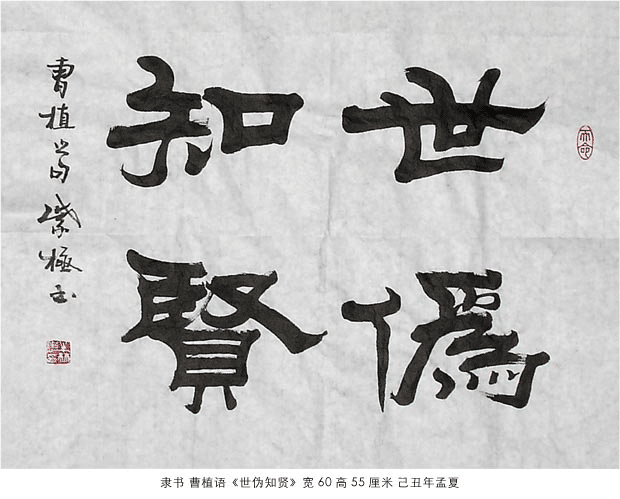 世僞
知賢
曹植
隶书 曹植语《世伪知贤》宽 60 高 55 厘米 己丑年孟夏